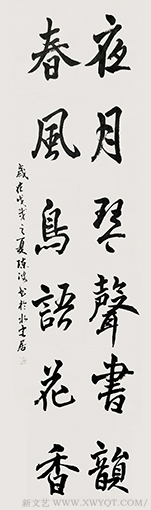 夜月琴聲書韻
春風鳥語花香
歲在戊戌之夏陳波書於水雲居
新文艺 WWW.XWYQT.COM